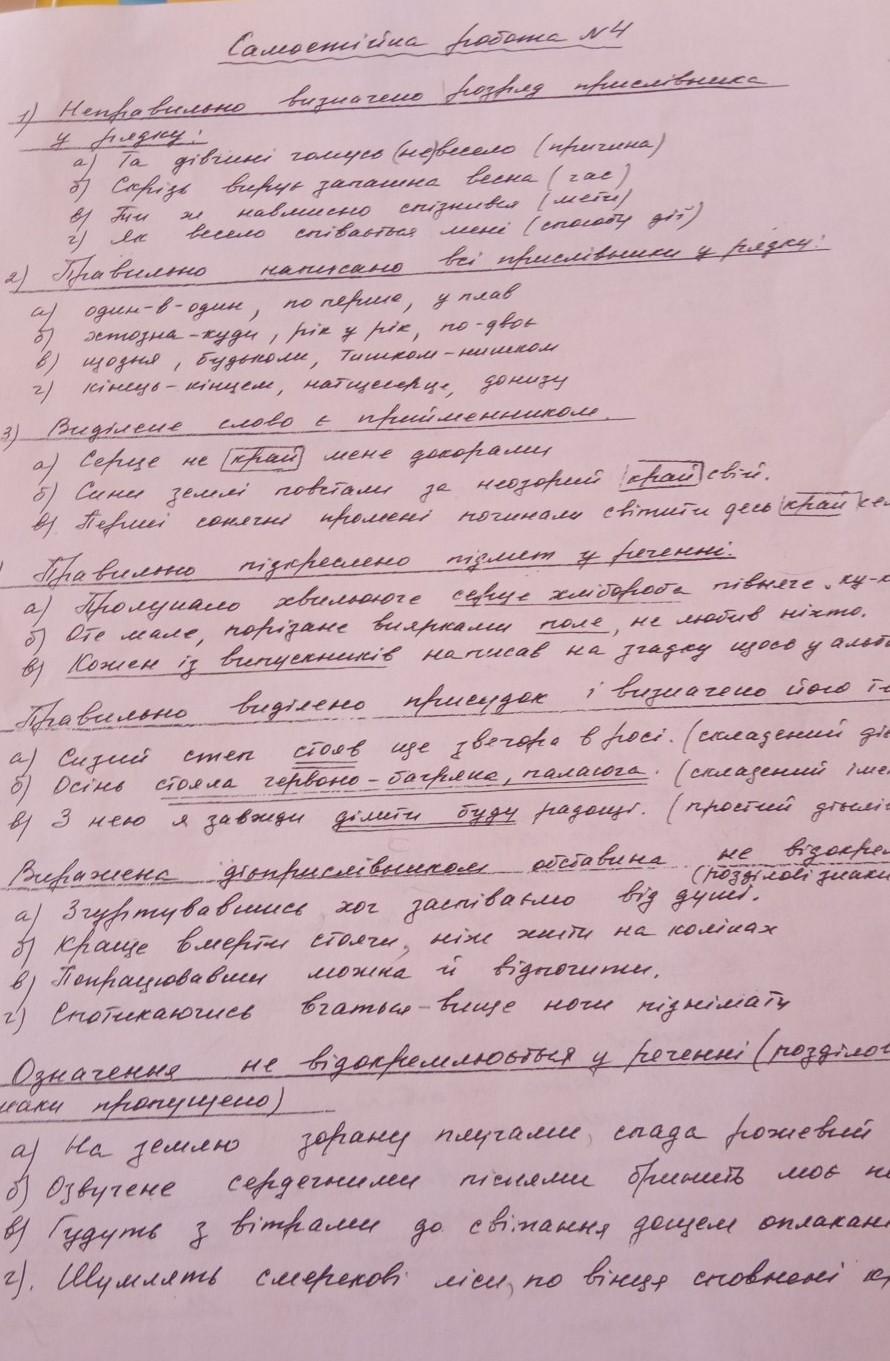 Самостійна робота №4
1) Неправильно визначено розряд прислівника
у рядку:
а) Та дівчині чомусь (не)весело (причина)
б) Скрізь вирує запашна весна (час)
в) Ти ж навмисно спізнився (мети)
г) Як весело співається мені (способу дії)
2) Правильно написано всі прислівники у рядку:
а) один-в-один, по перше, у плав
б) хтозна-куди, рік у рік, по-двоє
в) щодня, будьколи, тишком-нишком
г) кінець-кінцем, натщесерце, донизу
3) Виділене слово є прийменником.
а) Серце не край мене докорами
б) Сини землі повстали за неозорий край свій.
в) Перші сонячні промені починали світити десь край
Правильно підкреслено підмет у реченні.
а) Пролунало хвилююче серце хлібороба півняче ку-к
б) Оте мале, порізане виярками поле, не любив ніхто.
в) Кожен із випускників написав на згадку щось у
Правильно виділено присудок і визначено його
а) Сизий степ стояв ще звечора в росі. (складений
б) Осінь стояла червоно-багряна, палаюча. (складений
в) З нею я завжди ділити буду радощі. (простий
Виражена дієприслівником обставина не
(розділові знаки
а) Згуртувавшись хог заспіваємо від душі.
б) Краще вмерти стоячи, ніж жити на колінах
в) Попрацювавши можна й відпочити.
г) Спотикаючись вчаться вище ноги піднімати
Означення не відокремлюється у реченні (розділов
наки пропущено)
а) На землю зорану плугами, спада рожевий
б) Озвучене сердечними піснями бринить моє
в) Гудуть з вітрами до світання дощем оплакан
г). Шумлять смерекові ліси, по вінця сповнені